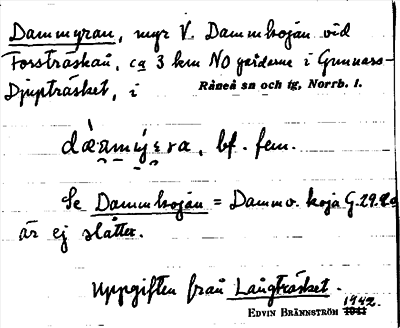 Dammyran, myr V. Dammkojan vid
Forsträskån, ca 3 km NO gårdarne i Gunnars-
Djupträsket, i Råneå sn och tg, Norrb. l.
dà̀amýɛra, bf. fem.
Se Dammkojan = Dammv. koja G.29.
är ej slåtter.
Uppgiften från Långträsket.
EDVIN BRÄNNSTRÖM 1941 1942.